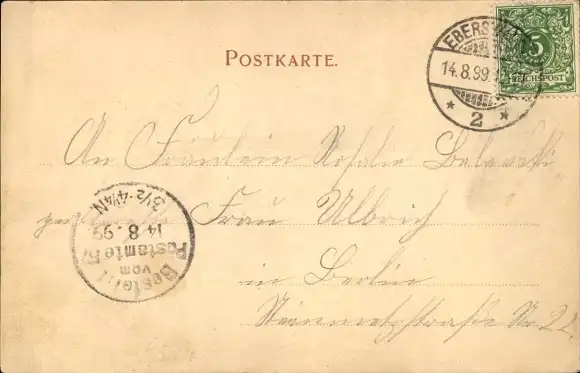 POSTKARTE.
EBERSW
14.8.99.
* 2 *
5
REICHSPOST
An Fräulein Rosalie
Frau Ulbrich
in Berlin
Steinmetzstraße Nr 22
Bestellt
vom
Postamte
14.8.99
3½-4¼N.